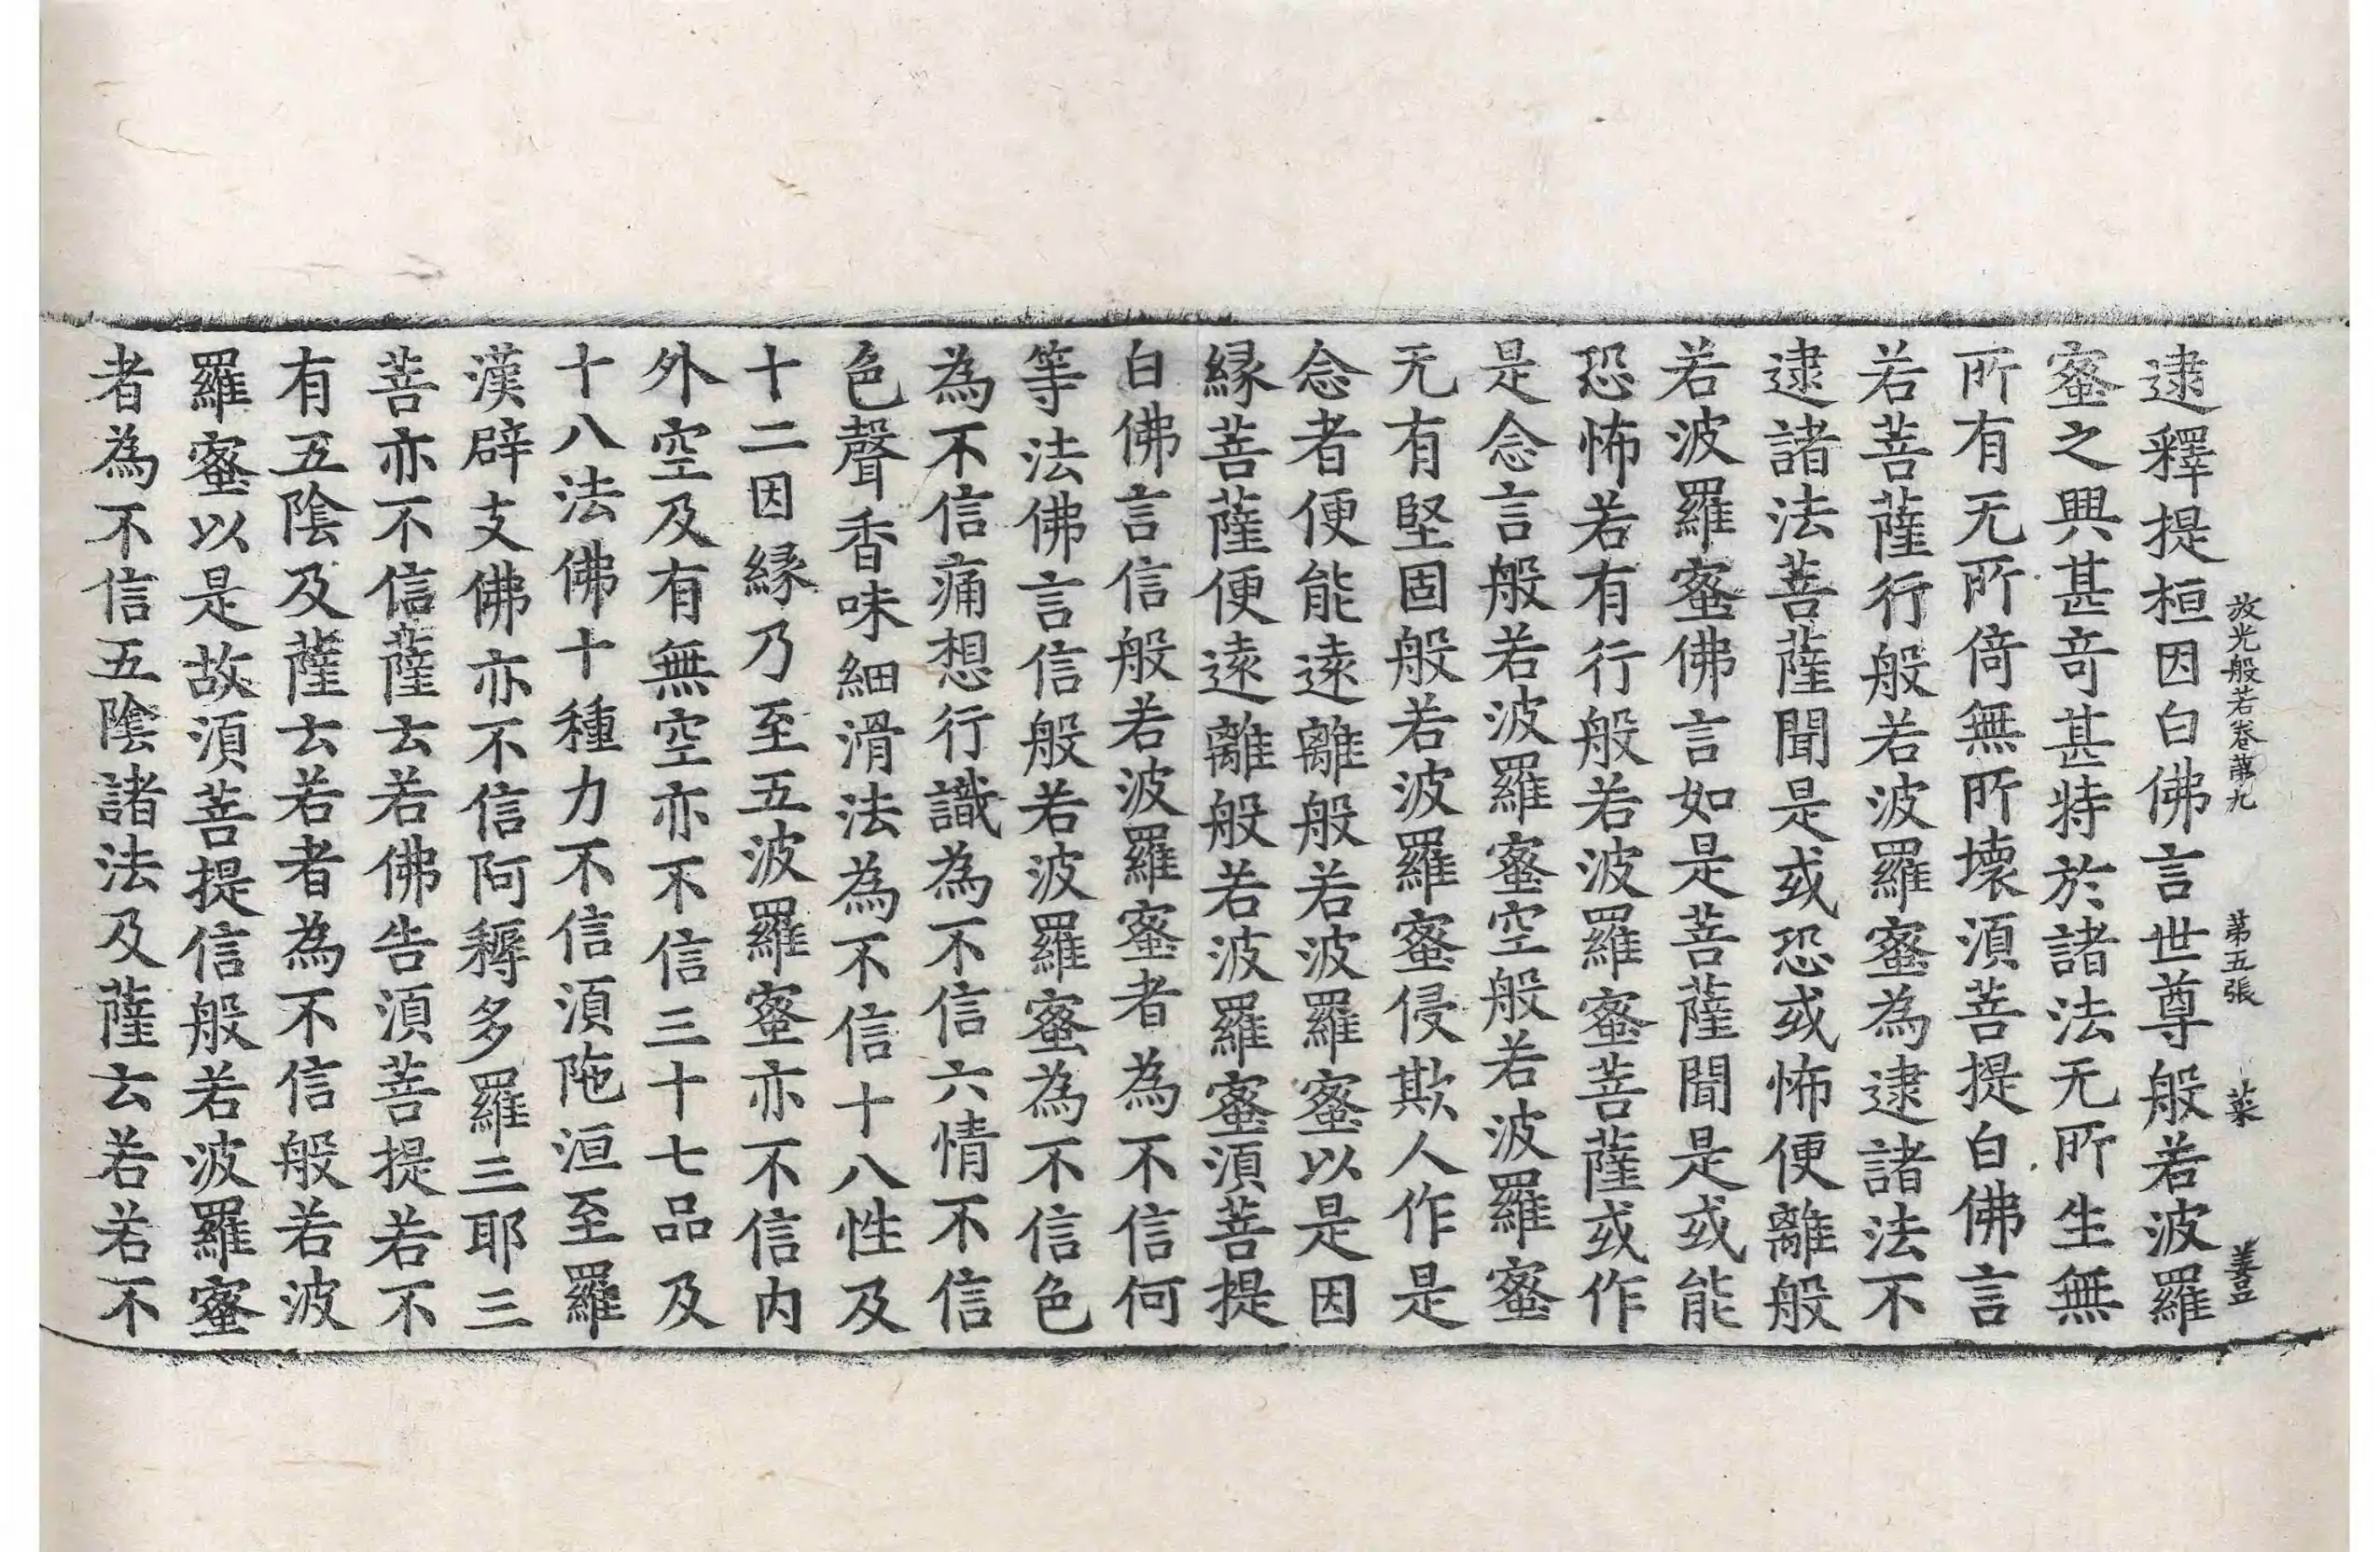 放光般若卷第九　第五張　菜　善豆
逮釋提桓因白佛言世尊般若波羅
蜜之興甚奇甚特於諸法无所生無
所有无所倚無所壞須菩提白佛言
若菩薩行般若波羅蜜為逮諸法不
逮諸法菩薩聞是或恐或怖便離般
若波羅蜜佛言如是菩薩聞是或能
恐怖若有行般若波羅蜜菩薩或作
是念言般若波羅蜜空般若波羅蜜
无有堅固般若波羅蜜侵欺人作是
念者便能遠離般若波羅蜜以是因
緣菩薩便遠離般若波羅蜜須菩提
白佛言信般若波羅蜜者為不信何
等法佛言信般若波羅蜜為不信色
為不信痛想行識為不信六情不信
色聲香味細滑法為不信十八性及
十二因緣乃至五波羅蜜亦不信内
外空及有無空亦不信三十七品及
十八法佛十種力不信須陁洹至羅
漢辟支佛亦不信阿耨多羅三耶三
菩亦不信薩云若佛告須菩提若不
有五陰及薩云若者為不信般若波
羅蜜以是故須菩提信般若波羅蜜
者為不信五陰諸法及薩云若若不